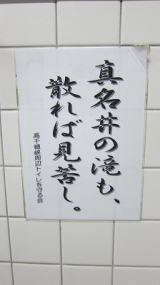 真名井の滝も、
散れば見苦し。
高千穂峡周辺トイレを守る会